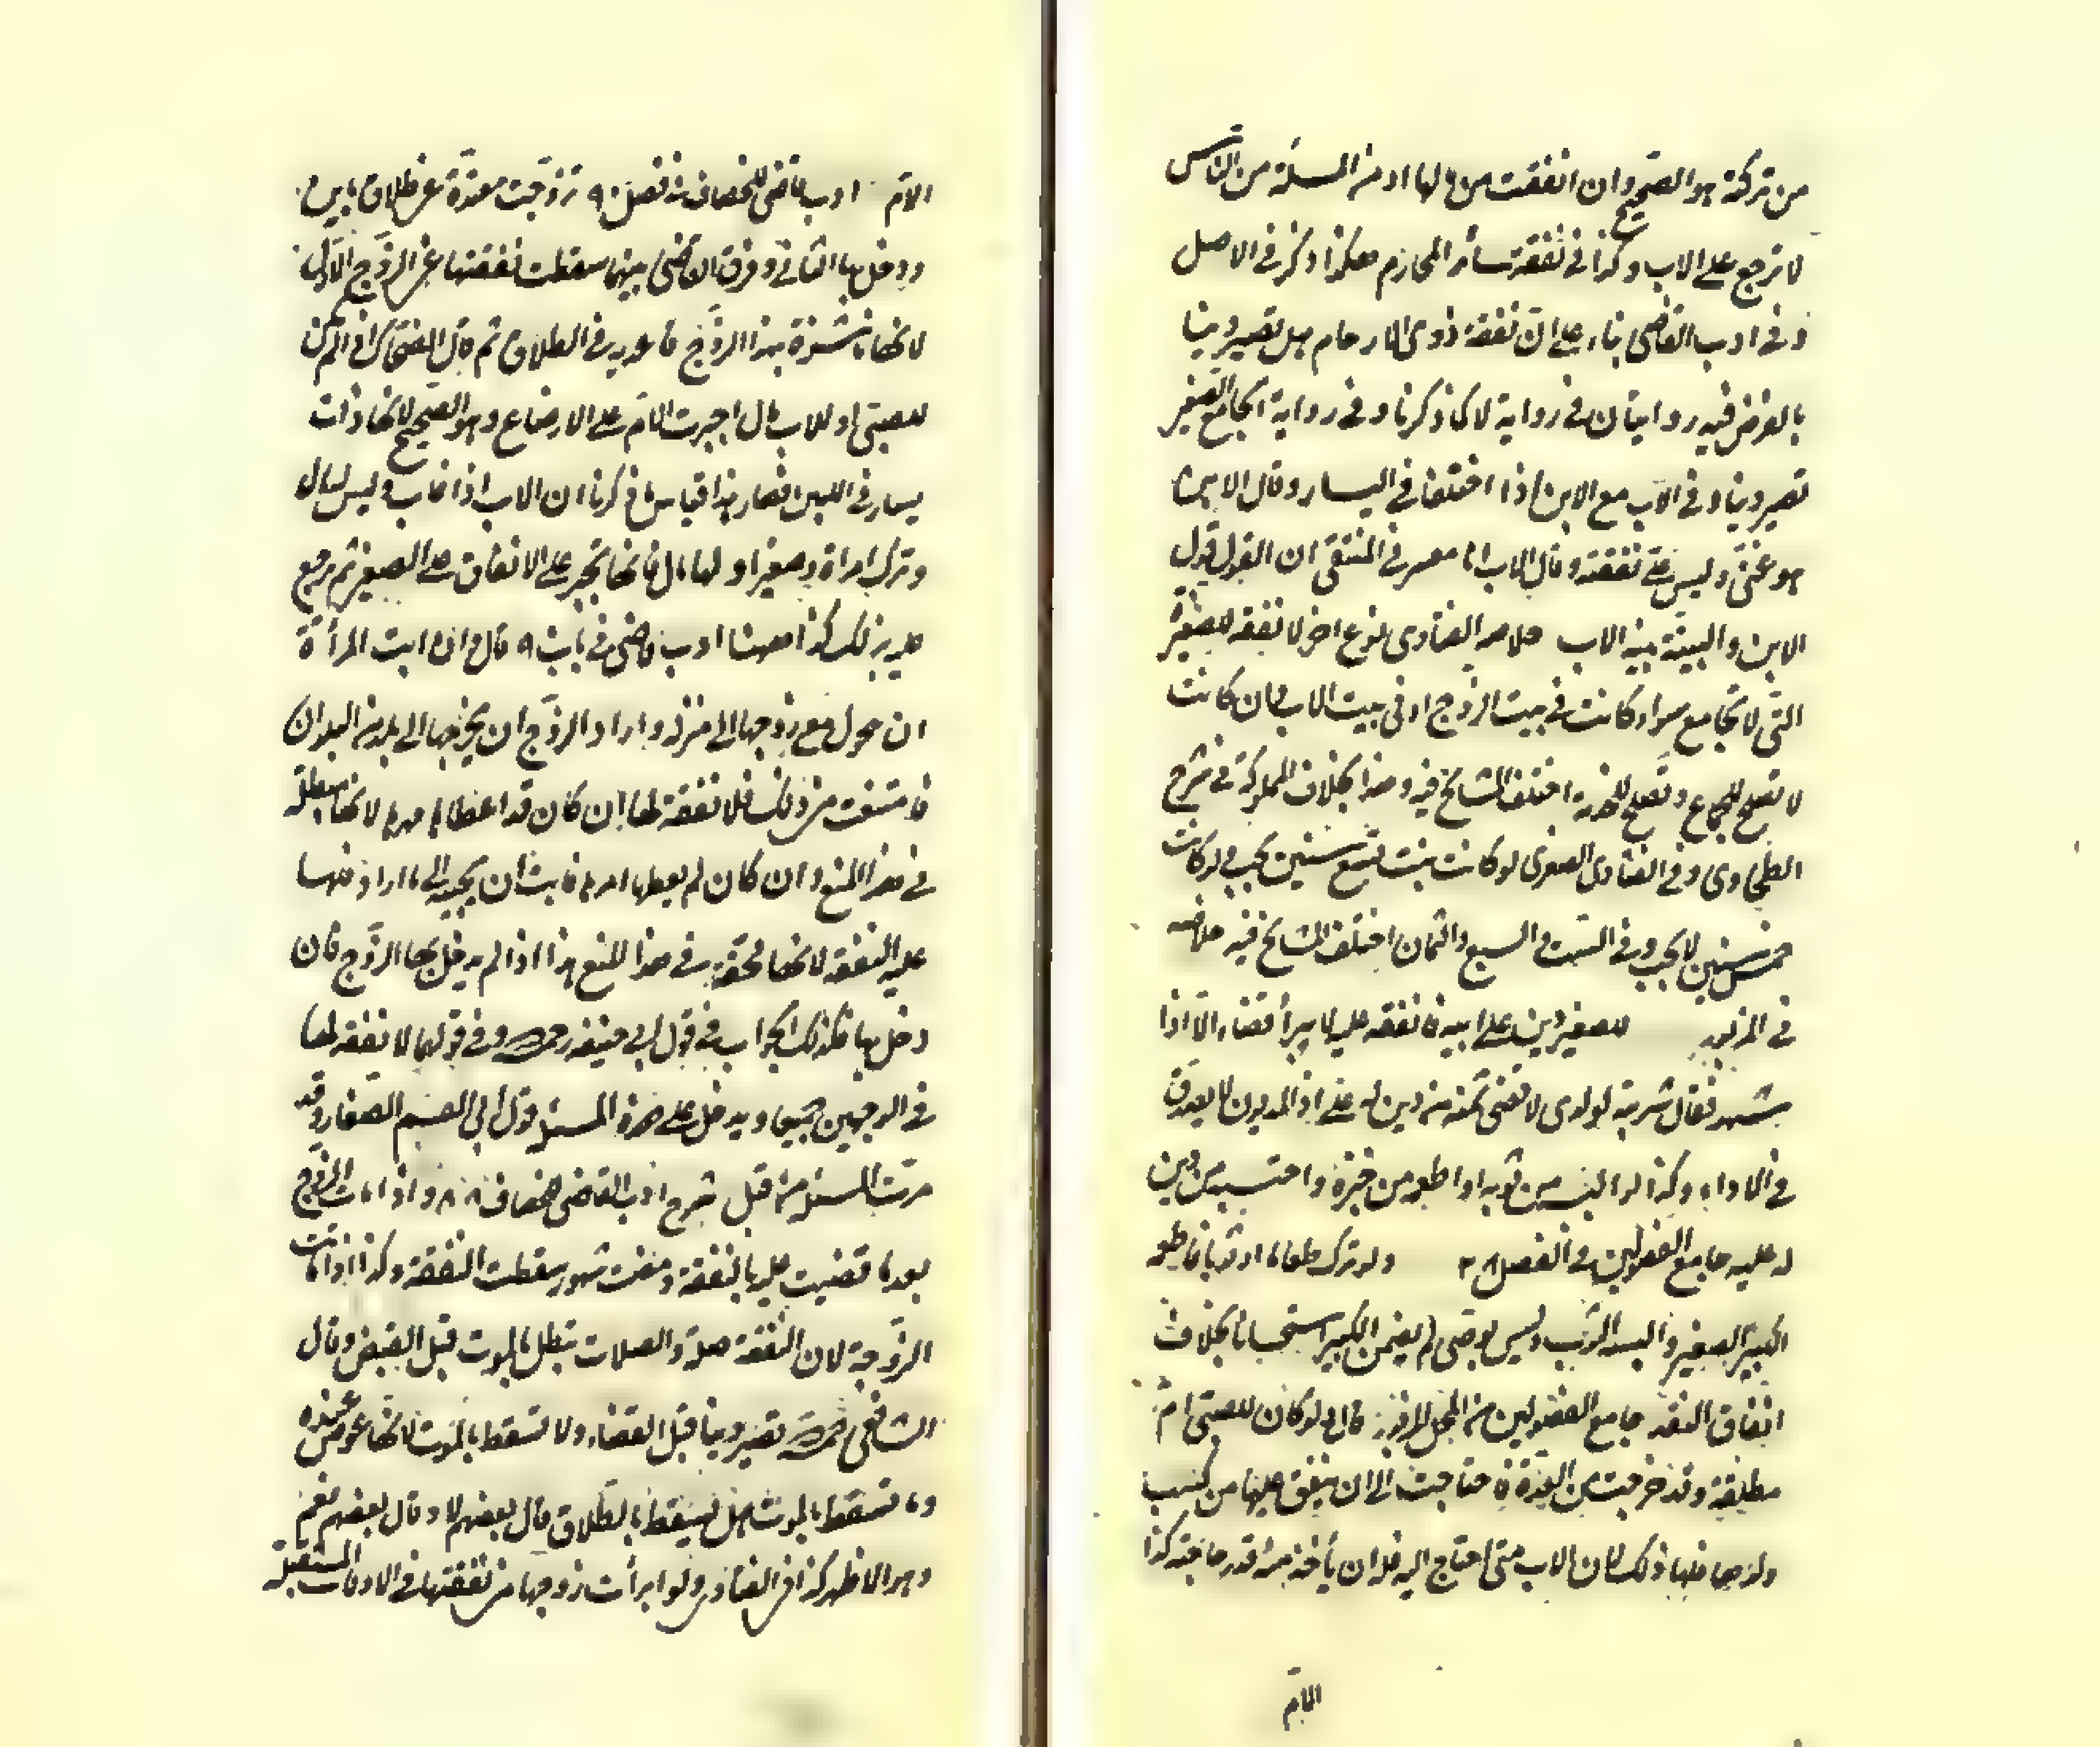 من تركته هو الصحيح وان انفقت من مالها او من المسئلة من الناس
لا ترجع على الاب وكذا في نفقة سائر المحارم هكذا ذكر في الاصل
وفي ادب القاضي بناء على ان نفقة ذوى الارحام هل تصير دينا
بالفرض فيه روايتان في رواية لا كما ذكرنا وفي رواية الجامع الصغير
تصير دينا وفي الاب مع الابن اذا اختلفا في اليسار وقال الابن
هو غنى وليس على نفقته وقال الاب انا معسر في المنتقى ان القول قول
الابن والبينة بينة الاب خلاصة الفتاوى نوع اخر لا نفقة للصغيرة
التى لا تجامع سواء كانت في بيت الزوج او في بيت الاب فان كانت
لا تصلح للجماع وتصلح للخدمة اختلف المشايخ فيه وهذا بخلاف المملوكة في شرح
الطحاوى وفي الفتاوى الصغرى لو كانت بنت تسع سنين يجب ولو كانت
خمس سنين لا يجب وفي الست والسبع والثمان اختلف المشايخ فيه خلاصه
في المزبور للصغير دين على ابيه فانفقه عليه لا يبرأ قضاء الا اذا
شهد فقال شريته لولدى لاقضى ثمنه من دين له على اذ المديون لا يصدق
في الاداء وكذا لو البسه من ثوبه او اطعمه من خبزه واحتسبه من دين
له عليه جامع الفصولين في الفصل ولو ترك طعاما او ثوبا فاطعمه
الكبير الصغير والبسه الثوب وليس بوصى لم يضمن الكبير استحسانا بخلاف
انفاق النقد جامع الفصولين من المحل المزبور قال ولو كان للصبى ام
مطلقة وقد خرجت من العدة فاحتاجت الى ان ينفق عليها من كسب
ولدها فلها ذلك لان الاب متى احتاج اليه فله ان يأخذ منه قدر حاجته كذا
الام
الام ادب قاضى للخصاف في فصل ٩ تزوجت معتدة عن طلاق باين
ودخل بها الثاني وفرق القاضى بينهما سقطت نفقتها عن الزوج الاول
لانها ناشزة بهذا الزوج فى الطلاق ثم قال الضحاك ان لم يكن
للصبى او للاب مال اجبرت الام على الارضاع وهو الصحيح لانها ذات
يسار في اللبن فصار هذا قياس ما ذكرنا ان الاب اذا غاب وليس له مال
وترك امراة وصغيرا ولها مال فانها تجبر على الانفاق على الصغير ثم ترجع
عليه بذلك كذا ههنا ادب قاضى في باب ٩ قال وان ابت المرأة
ان تحول مع زوجها الى منزله او اراد الزوج ان يخرجها الى بلد من البلدان
فامتنعت من ذلك فلا نفقة لها ان كان قد اعطاها مهرها لانها مبطلة
في هذا المنع وان كان لم يعطها مهرها فابت ان تجيبه الى ما اراد فلها
عليه النفقة لانها محقة في هذا المنع هذا اذا لم يدخل بها الزوج فان
دخل بها فكذلك الجواب في قول ابى حنيفة رحمه الله وفي قولهما لا نفقة لها
في الوجهين جميعا ويدخل على هذه المسئلة قول ابى القسم الصفار وقد
مرت المسئلة من قبل شرح ادب القاضى للخصاف ٨٠ واذا مات الزوج
بعد ما قضيت عليه بالنفقة ومضت شهور سقطت النفقة وكذا اذا ماتت
الزوجة لان النفقة صلة والصلات تبطل بالموت قبل القبض وقال
الشافعى رحمه الله تصير دينا قبل القضاء ولا تسقط بالموت لانها عوض عنده
وما تسقط بالموت هل يسقط بالطلاق قال بعضهم لا وقال بعضهم نعم
وهو الاظهر كذا في الفتاوى ولو ابرأت زوجها من نفقتها في الاوقات المستقبلة